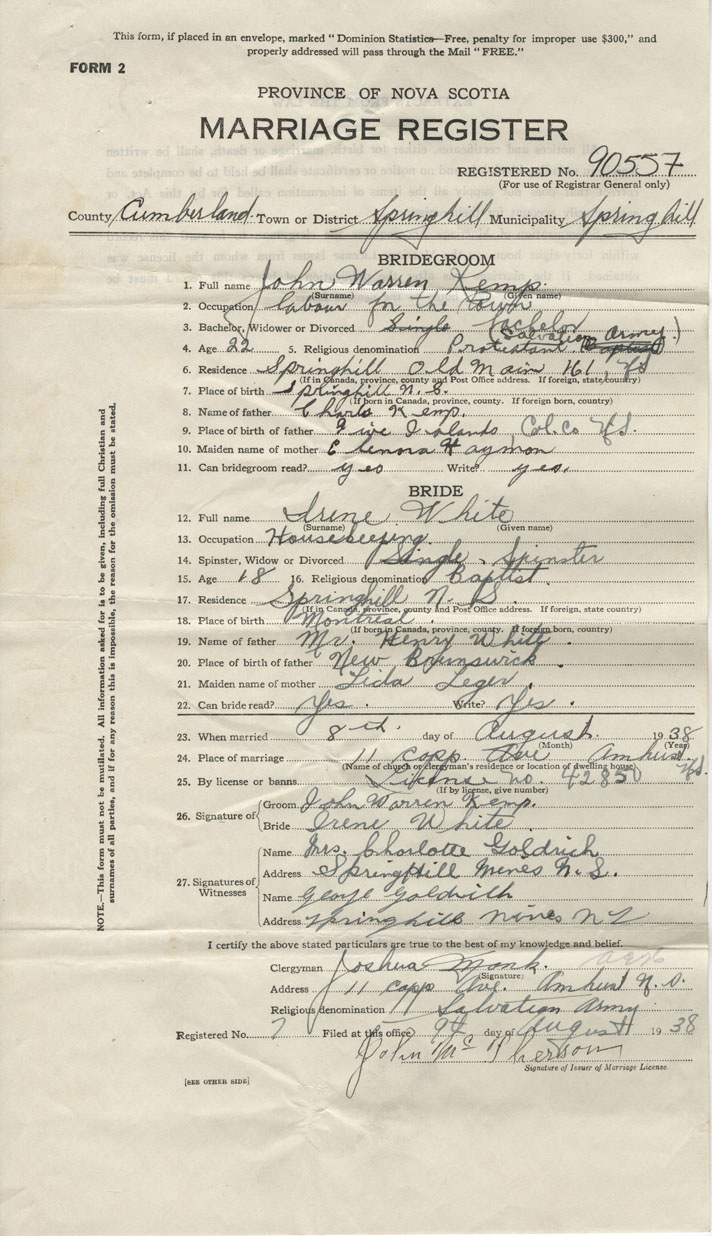 This form, if placed in an envelope, marked "Dominion Statistics—Free, penalty for improper use $300," and
properly addressed will pass through the Mail "FREE."
FORM 2
PROVINCE OF NOVA SCOTIA
MARRIAGE REGISTER
REGISTERED No. 90557
(For use of Registrar General only)
County Cumberland Town or District Springhill Municipality Springhill
BRIDEGROOM
1. Full name John Warren Kemp.
(Surname) (Given name)
2. Occupation labour for the Town
3. Bachelor, Widower or Divorced Single bachelor
(Salvation Army)
4. Age 22 5. Religious denomination Protestant Baptist
6. Residence Springhill Old Main 161, NS
(If in Canada, province, county and Post Office address. If foreign, state country)
7. Place of birth Springhill N. S.
(If born in Canada, province, county. If foreign born, country)
8. Name of father Charls Kemp.
9. Place of birth of father Five Islands, Col. Co NS.
10. Maiden name of mother Elenora Haymon
11. Can bridegroom read? yes Write? yes.
BRIDE
12. Full name Irene White
(Surname) (Given name)
13. Occupation Housekeeping.
14. Spinster, Widow or Divorced Single Spinster
15. Age 18 16. Religious denomination Baptist.
17. Residence Springhill N. S.
(If in Canada, province, county and Post Office address. If foreign, state country)
18. Place of birth Montreal.
(If born in Canada, province, county. If foreign born, country)
19. Name of father Mr. Henry White
20. Place of birth of father New Brunswick.
21. Maiden name of mother Leda Leger.
22. Can bride read? Yes. Write? Yes.
23. When married 8th day of August. 1938
(Month) (Year)
24. Place of marriage 11 Copp Ave Amherst NS.
(Name of church or clergyman's residence or location of dwelling house)
25. By license or banns License no. 42850
(If by license, give number)
26. Signature of Groom John Warren Kemp.
Bride Irene White.
27. Signatures of Witnesses
Name Mrs. Charlotte Goldrich
Address Springhill Mines N. S.
Name George Goldrich
Address Springhill Mines NS
I certify the above stated particulars are true to the best of my knowledge and belief.
Clergyman Joshua Monk.
(Signature)
Address 11 Copp Ave. Amherst N. S.
Religious denomination Salvation Army
Registered No. 7 Filed at this office 9th day of August 1938
John McPherson
Signature of Issuer of Marriage License.
[SEE OTHER SIDE]
NOTE.—This form must not be mutilated. All information asked for is to be given, including full Christian and
surnames of all parties, and if for any reason this is impossible, the reason for the omission must be stated.